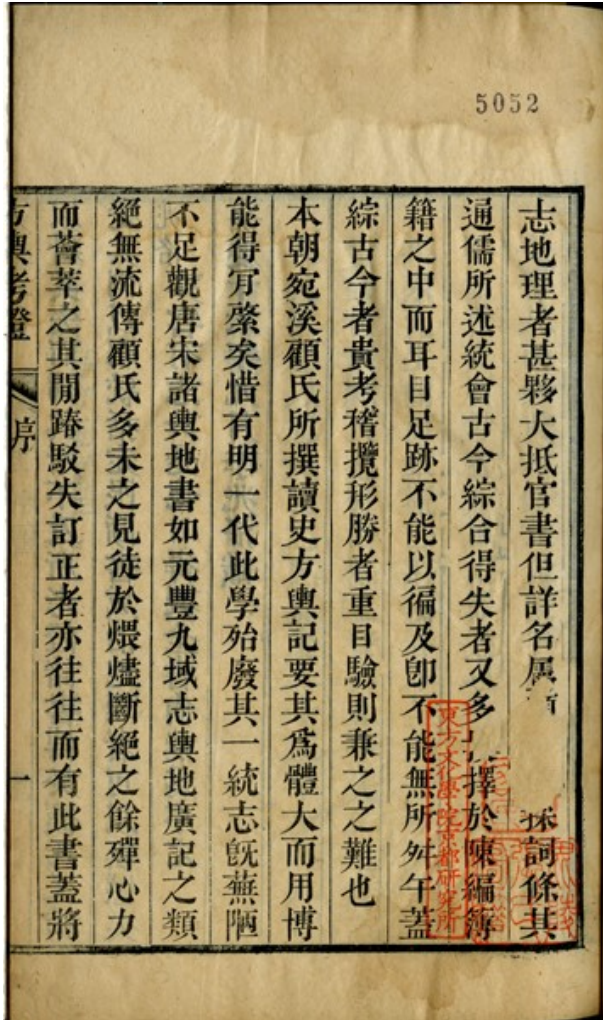 5052
志地理者甚夥大抵官書但詳名屬採詞條其
通儒所述統會古今綜合得失者又多擇於陳編簿
籍之中而耳目足跡不能以徧及卽不能無所舛午蓋
綜古今者貴考稽攬形勝者重目驗則兼之之難也
本朝宛溪顧氏所撰讀史方輿記要其爲體大而用博
能得肎綮矣惜有明一代此學殆廢其一統志旣蕪陋
不足觀唐宋諸輿地書如元豐九域志輿地廣記之類
絕無流傳顧氏多未之見徒於煨燼斷絕之餘殫心力
而薈萃之其閒踳駁失訂正者亦往往而有此書蓋將
方輿考證 序 一
東方文化學院京都研究所